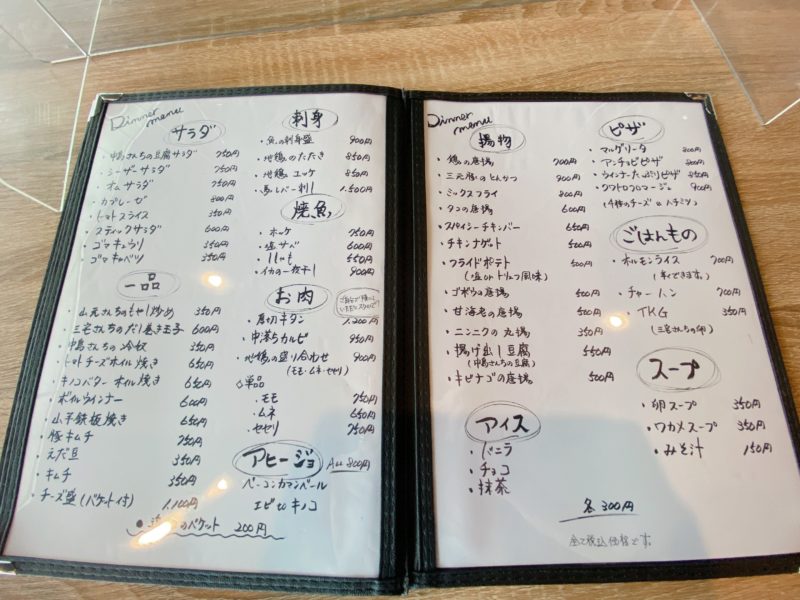 Dinner menu
サラダ
・中島さんちの豆腐サラダ 750円
・シーザーサラダ 750円
・オムサラダ 750円
・カプレーゼ 800円
・トマトスライス 350円
・スティックサラダ 600円
・ゴマキュウリ 350円
・ゴマキャベツ 350円
一品
・山元さんちのもやし炒め 350円
・三宅さんちのだし巻き玉子 600円
・中島さんちの冷奴 350円
・トマトチーズホイル焼き 650円
・キノコバターホイル焼き 650円
・ボイルウィンナー 600円
・山芋鉄板焼き 650円
・豚キムチ 750円
・えだ豆 350円
・キムチ 350円
・チーズ盛(バケット付) 1,100円
のバケット 200円
刺身
・魚の刺身盛 900円
・地鶏のたたき 850円
・地鶏ユッケ 850円
・馬レバー刺し 1,500円
焼魚
・ホッケ 750円
・塩サバ 600円
・ししゃも 550円
・イカの一夜干し 900円
お肉
・厚切牛タン 1,200円
・中落ちカルビ 950円
・地鶏の盛り合わせ 900円
(モモ・ムネ・セセリ)
◇単品
・モモ 750円
・ムネ 650円
・セセリ 750円
アヒージョ ALL 800円
ベーコンカマンベール
エビtoキノコ
Dinner menu
揚物
・鶏の唐揚 700円
・三元豚のとんかつ 900円
・ミックスフライ 800円
・タコの唐揚 600円
・スパイシーチキンバー 650円
・チキンナゲット 500円
・フライドポテト 500円
(塩orトリュフ風味)
・ゴボウの唐揚 500円
・甘海老の唐揚 500円
・ニンニクの丸揚 500円
・揚げ出し豆腐 550円
(中島さんちの豆腐)
・キビナゴの唐揚 500円
アイス
・バニラ
・チョコ
・抹茶
各300円
全て税込価格です。
ピザ
・マルゲリータ 800円
・アンチョビピザ 800円
・ウインナーたっぷりピザ 850円
・クワトロフロマージュ 900円
(4種のチーズtoハチミツ)
ごはんもの
・ホルモンライス 700円
(辛くできます。)
・チャーハン 700円
・TKG 350円
(三宅さんちの卵)
スープ
・卵スープ 350円
・ワカメスープ 350円
・みそ汁 150円